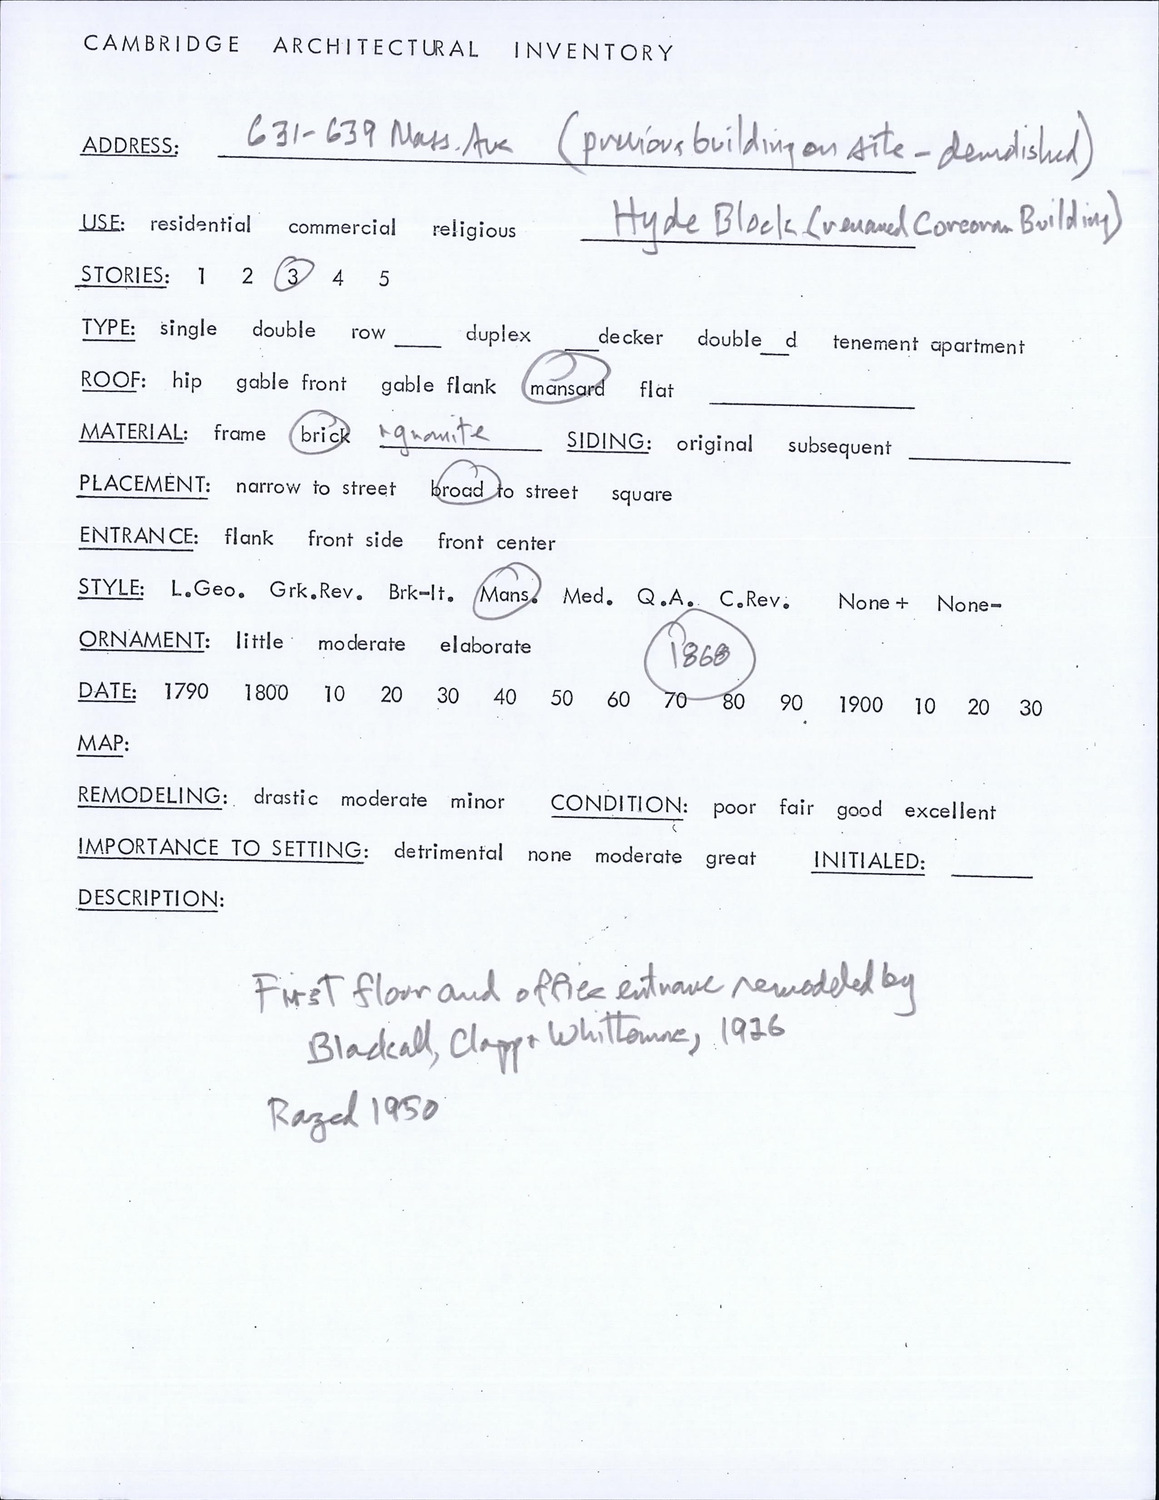 CAMBRIDGE ARCHITECTURAL INVENTORY
ADDRESS: 631-639 Mass. Ave (previous building on site - demolished)
USE: residential commercial religious Hyde Block (renamed Corcoran Building)
STORIES: 1 2 3 4 5
TYPE: single double row ___ duplex ___decker double__d tenement apartment
ROOF: hip gable front gable flank mansard flat ___
MATERIAL: frame brick + granite SIDING: original subsequent ___
PLACEMENT: narrow to street broad to street square
ENTRANCE: flank front side front center
STYLE: L.Geo. Grk.Rev. Brk-It. Mans. Med. Q.A. C.Rev. None+ None-
ORNAMENT: little moderate elaborate 1868
DATE: 1790 1800 10 20 30 40 50 60 70 80 90 1900 10 20 30
MAP:
REMODELING: drastic moderate minor CONDITION: poor fair good excellent
IMPORTANCE TO SETTING: detrimental none moderate great INITIALED: ___
DESCRIPTION:
First floor and office entrance remodeled by
Blackall, Clapp + Whittemore, 1926
Razed 1950